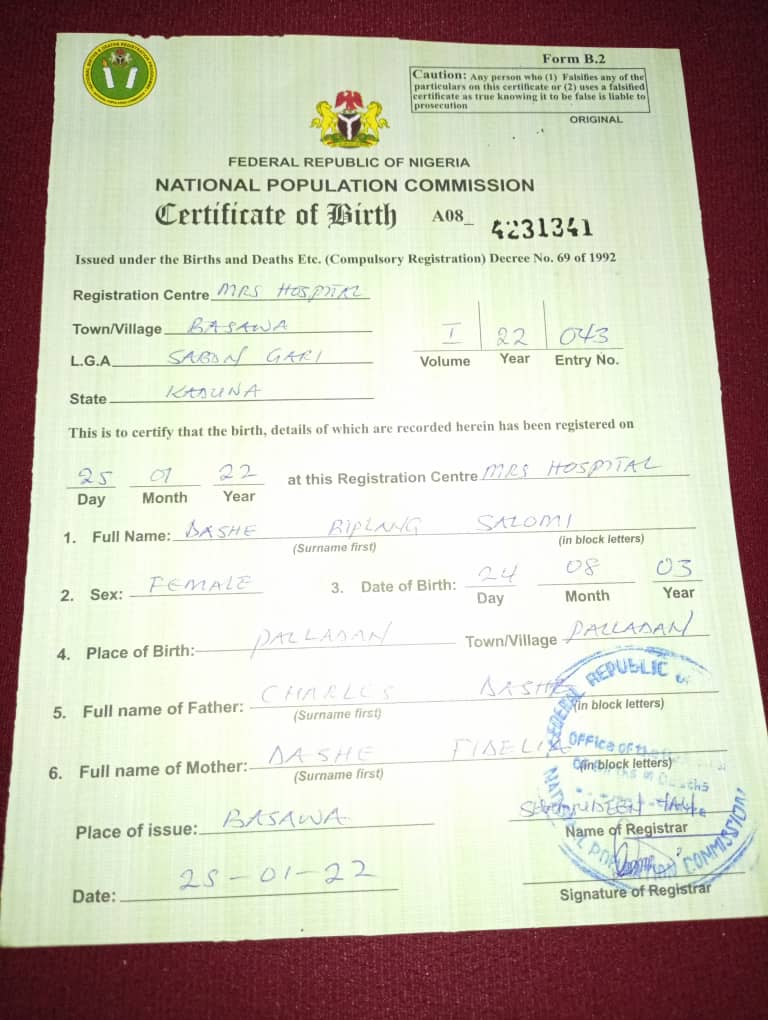 Form B.2
Caution: Any person who (1) Falsifies any of the
particulars on this certificate or (2) uses a falsified
certificate as true knowing it to be false is liable to
prosecution
ORIGINAL
FEDERAL REPUBLIC OF NIGERIA
NATIONAL POPULATION COMMISSION
Certificate of Birth A08_ 4231341
Issued under the Births and Deaths Etc. (Compulsory Registration) Decree No. 69 of 1992
Registration Centre MRS HOSPITAL
Town/Village BASAWA
I 22 043
Volume Year Entry No.
L.G.A SABON GARI
State KADUNA
This is to certify that the birth, details of which are recorded herein has been registered on
25 01 22 at this Registration Centre MRS HOSPITAL
Day Month Year
1. Full Name: DASHE RIPLANG SALOMI
(Surname first) (in block letters)
2. Sex: FEMALE 3. Date of Birth: 24 08 03
Day Month Year
4. Place of Birth: PALLADAN Town/Village PALLADAN
5. Full name of Father: CHARLES DASHE
(Surname first) (in block letters)
6. Full name of Mother: DASHE FIDELIA
(Surname first) (in block letters)
Place of issue: BASAWA
Name of Registrar
Date: 25-01-22
Signature of Registrar
FEDERAL REPUBLIC OF
NATIONAL POPULATION COMMISSION
Office of the